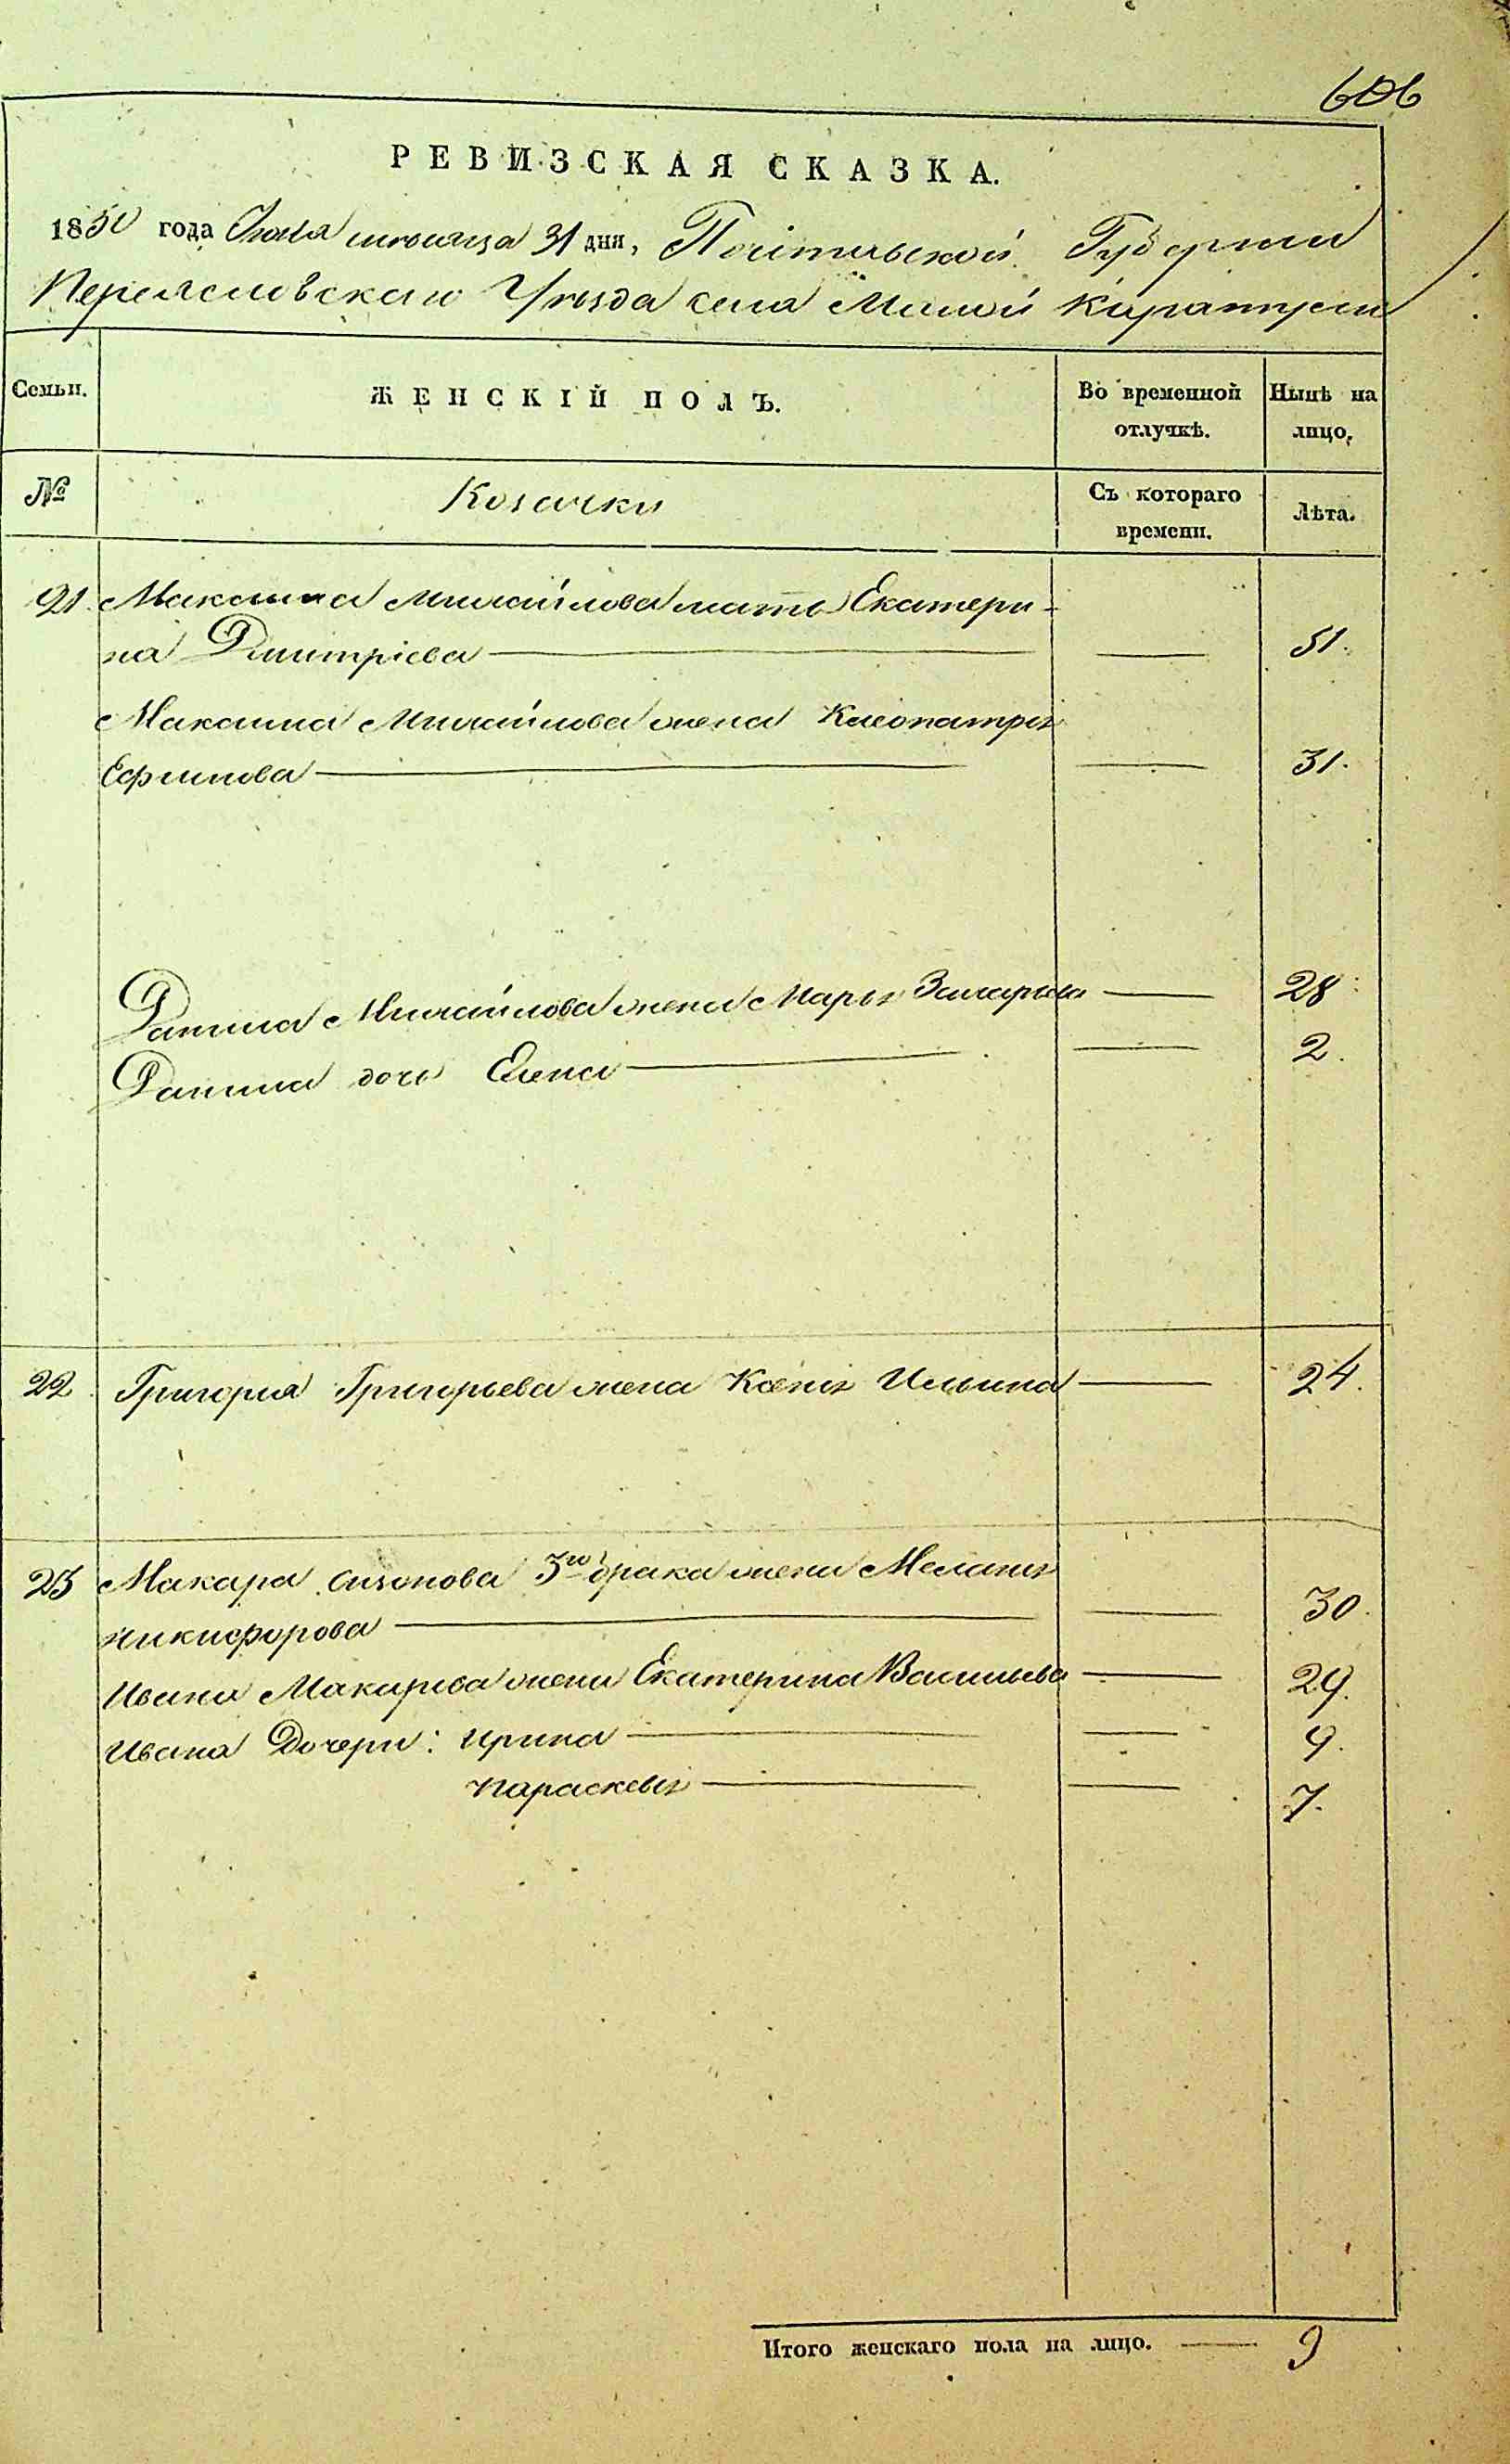 606
РЕВИЗСКАЯ СКАЗКА.
1850 года мѣсяца 31 дня, Полтавской Губерніи
Переяславскаго Уѣзда села Малой Каратули
Семьи. ЖЕНСКІЙ ПОЛЪ. Во временной отлучкѣ. Нынѣ на лицо.
№ Козачки Съ котораго времени. Лѣта.
21. Максима Михайлова мать Екатери-
на Дмитріева — — 51.
Максима Михайлова жена Клеопатра
Ефимова — — 31.
Данила Михайлова жена Марья Захарьева — 28
Данила дочь Елена — — 2.
22 Григорія Григорьева жена Ксенія Ильина — 24.
23 Макара Сизонова 3го брака жена Меланія
Никифорова — — 30.
Ивана Макарьева жена Екатерина Васильева — 29.
Ивана Дочери: Ирина — — 9.
Параскевія — — 7.
Итого женскаго пола на лицо. — 9